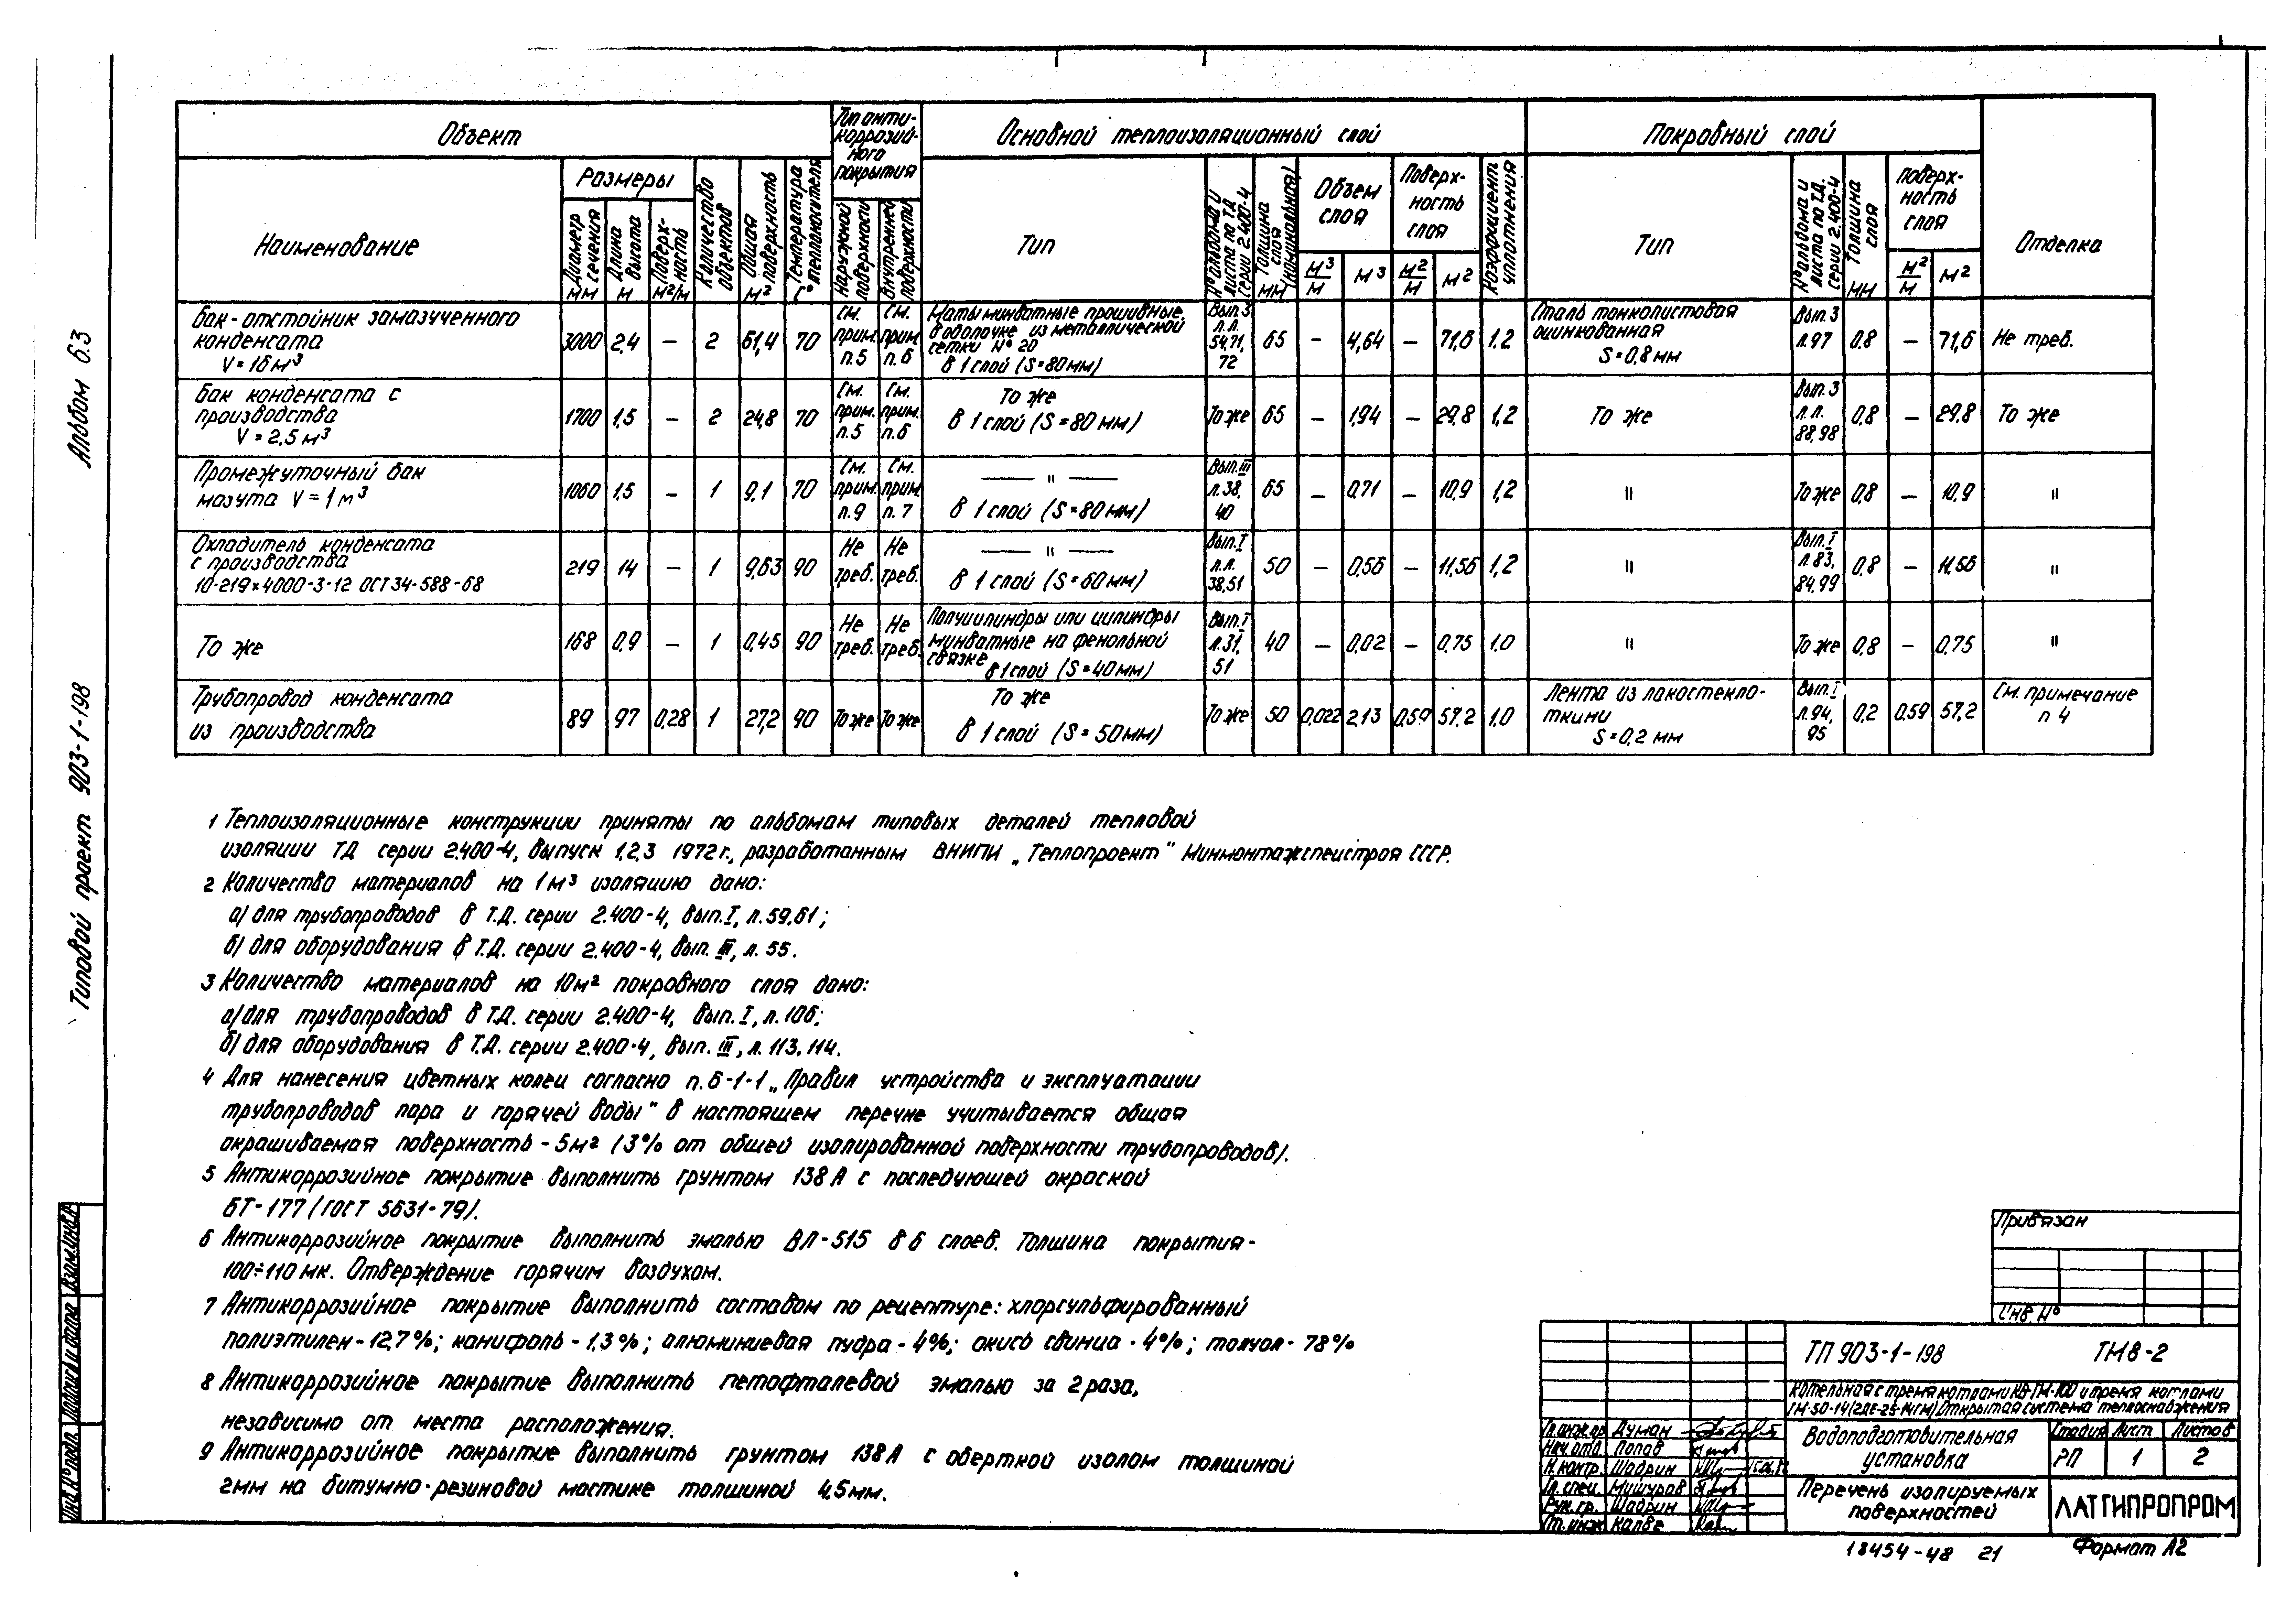 Альбом 6.3
Типовой проект 903-1-198
Объект
Тип анти-
коррозий-
ного
покрытия
Основной теплоизоляционный слой
Покровный слой
Отделка
Наименование
Размеры
Диаметр сечения мм
Длина высота м
Поверх-ность м²/м
Количество объектов
Общая поверхность м²
Температура теплоносителя С°
Наружной поверхности
Внутренней поверхности
Тип
№ альбома и листа по ТД серии 2.400-4
Толщина слоя (номинальная) мм
Объем слоя
м³/м
м³
Поверх-ность слоя
м²/м
м²
Коэффициент уплотнения
Тип
№ альбома и листа по ТД. серии 2.400-4
Толщина слоя мм
Поверх-ность слоя
м²/м
м²
Бак-отстойник замазученного конденсата V=16м³ 3000 2,4 — 2 61,4 70 См. прим. п.5 См. прим. п.6 Маты минватные прошивные, в оболочке из металлической сетки №20 в 1 слой (S=80мм) Вып.3 л.л. 54,71, 72 65 — 4,64 — 71,6 1.2 Сталь тонколистовая оцинкованная S=0,8мм Вып.3 л.97 0.8 — 71,6 Не треб.
Бак конденсата с производства V=2,5м³ 1700 1,5 — 2 24,8 70 См. прим. п.5 См. прим. п.6 То же в 1 слой (S=80мм) То же 65 — 1,94 — 29,8 1,2 То же Вып.3 л.л. 88,98 0,8 — 29.8 То же
Промежуточный бак мазута V=1м³ 1060 1,5 — 1 9,1 70 См. прим. п.9 См. прим. п.7 — " — в 1 слой (S=80мм) Вып.III л.38, 40 65 — 0,71 — 10,9 1,2 " То же 0,8 — 10,9 "
Охладитель конденсата с производства 10-219×4000-3-12 ОСТ34-588-68 219 14 — 1 9,63 90 Не треб. Не треб. — " — в 1 слой (S=60мм) Вып.I л.л. 38,51 50 — 0,56 — 11,56 1,2 " Вып.I л.83, 84,99 0,8 — 11,56 "
То же 168 0,9 — 1 0,45 90 Не треб. Не треб. Полуцилиндры или цилиндры минватные на фенольной связке в 1 слой (S=40мм) Вып.I л.31, 51 40 — 0,02 — 0,75 1.0 " То же 0,8 — 0,75 "
Трубопровод конденсата из производства 89 97 0,28 1 27,2 90 То же То же То же в 1 слой (S=50мм) То же 50 0,022 2,13 0,59 57,2 1.0 Лента из лакостекло-ткани S=0,2 мм Вып.I л.94, 95 0,2 0,59 57,2 См. примечание п 4
1 Теплоизоляционные конструкции приняты по альбомам типовых деталей тепловой
изоляции ТД серии 2.400-4, выпуск 1,2,3 1972г., разработанным ВНИПИ „Теплопроект" Минмонтажспецстроя СССР.
2 Количество материалов на 1м³ изоляцию дано:
а) для трубопроводов в Т.Д. серии 2.400-4, вып.I, л.59,61;
б) для оборудования в Т.Д. серии 2.400-4, вып. III, л.55.
3 Количество материалов на 10м² покровного слоя дано:
а) для трубопроводов в Т.Д. серии 2.400-4, вып. I, л.106;
б) для оборудования в Т.Д. серии 2.400-4, вып. III, л.113,114.
4 Для нанесения цветных колец согласно п.6-1-1 „Правил устройства и эксплуатации
трубопроводов пара и горячей воды" в настоящем перечне учитывается общая
окрашиваемая поверхность - 5м² (3% от общей изолированной поверхности трубопроводов).
5 Антикоррозийное покрытие выполнить грунтом 138А с последующей окраской
БТ-177 (ГОСТ 5631-79).
6 Антикоррозийное покрытие выполнить эмалью ВЛ-515 в 6 слоев. Толщина покрытия-
100÷110мк. Отверждение горячим воздухом.
7 Антикоррозийное покрытие выполнить составом по рецептуре: хлорсульфированный
полиэтилен-12,7%; канифоль-1,3%; алюминиевая пудра-4%; окись свинца-4%; толуол-78%
8 Антикоррозийное покрытие выполнить пентофталевой эмалью за 2 раза,
независимо от места расположения.
9 Антикоррозийное покрытие выполнить грунтом 138А с оберткой изолом толщиной
2мм на битумно-резиновой мастике толщиной 4,5мм.
Привязан
Инв. №
ТП 903-1-198 ТМ8-2
Котельная с тремя котлами КВ-ГМ-100 и тремя котлами
ГМ-50-14(2ДЕ-25-14ГМ) Открытая система теплоснабжения
Гл.инж.пр Думан
Нач.отд. Попов
Н.контр. Шадрин
Гл.спец. Мишуров
Рук.гр. Шадрин
Ст.инж Калве
Водоподготовительная
установка
Стадия Лист Листов
РП 1 2
Перечень изолируемых
поверхностей
ЛАТГИПРОПРОМ
Инв.№подл. Подпись и дата Взам.инв.№
18454-48 21
Формат А2